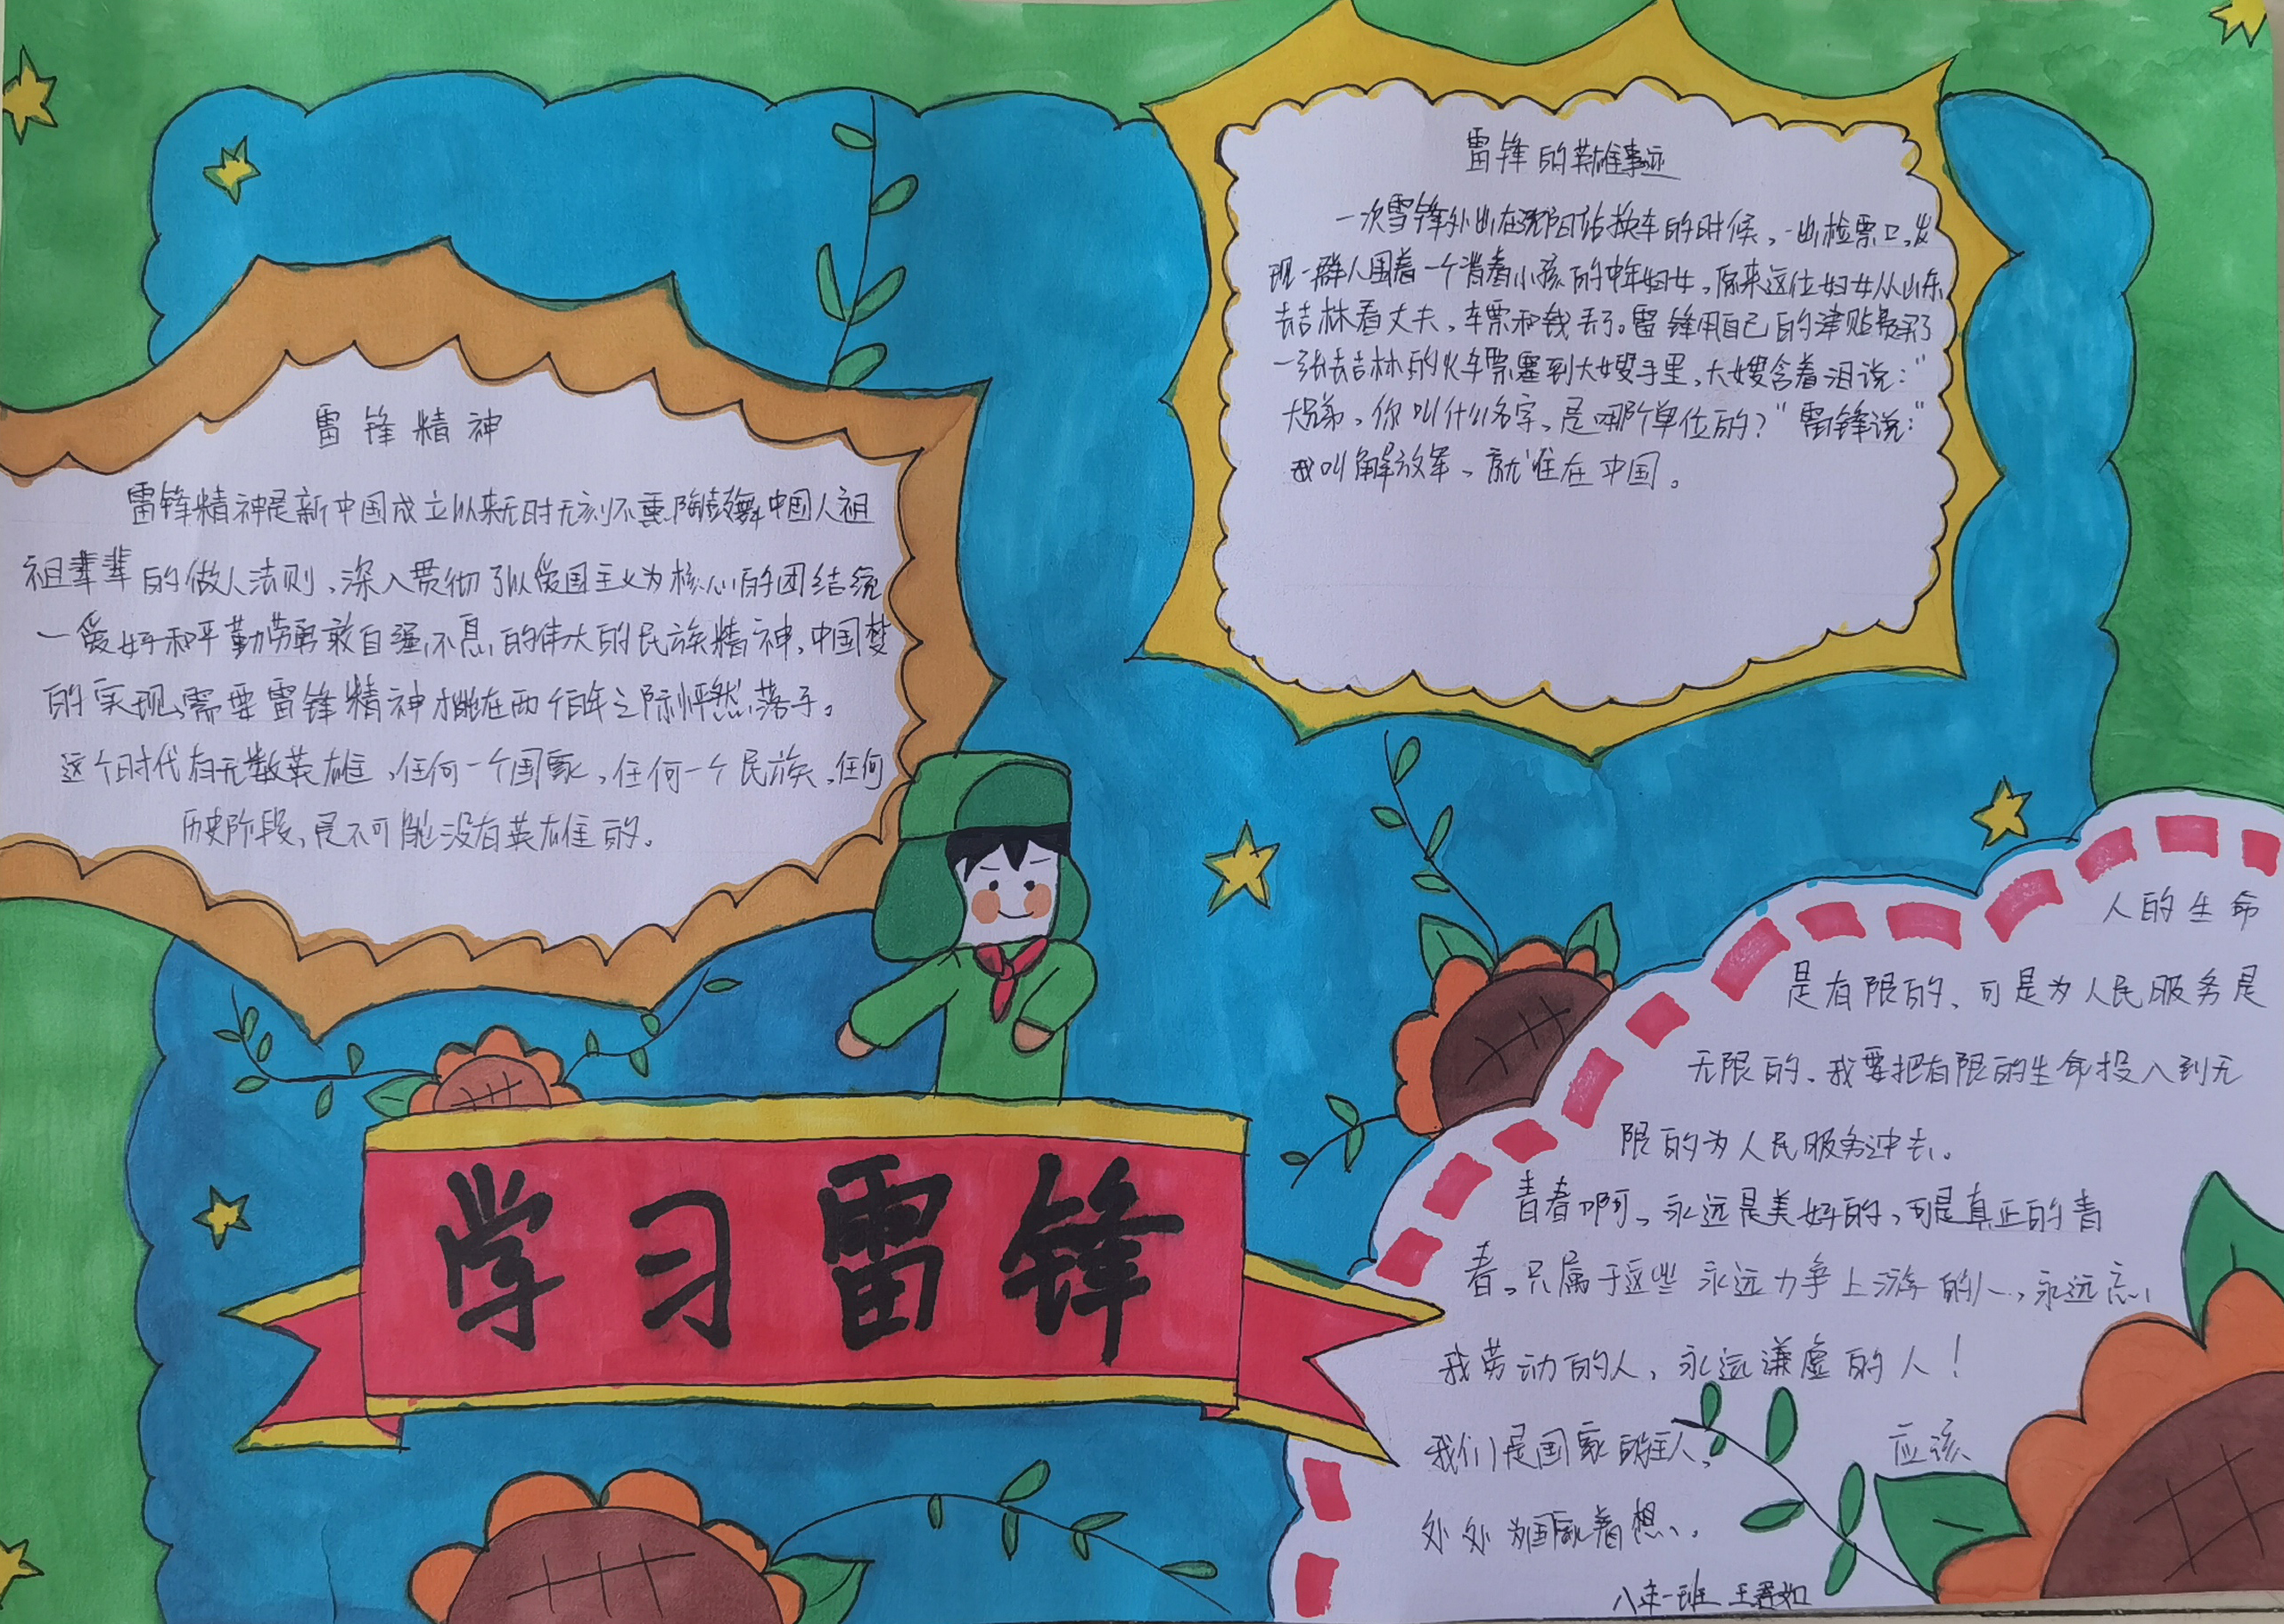 雷锋精神
雷锋精神是新中国成立以来无时无刻不熏陶鼓舞中国人祖
祖辈辈的做人法则,深入贯彻了以爱国主义为核心的团结统
一爱好和平勤劳勇敢自强不息的伟大的民族精神,中国梦
的实现,需要雷锋精神才能在两个百年之际怦然落子。
这个时代有无数英雄,任何一个国家,任何一个民族,任何
历史阶段,是不可能没有英雄的。
雷锋的英雄事迹
一次雷锋外出在沈阳站换车的时候,一出检票口,发
现一群人围着一个背着小孩的中年妇女,原来这位妇女从山东
去吉林看丈夫,车票和钱丢了。雷锋用自己的津贴费买了
一张去吉林的火车票塞到大嫂手里,大嫂含着泪说:“
大兄弟,你叫什么名字,是哪个单位的?”雷锋说:“
我叫解放军,就住在中国。
学习雷锋
人的生命
是有限的、可是为人民服务是
无限的、我要把有限的生命投入到无
限的为人民服务之中去。
青春啊,永远是美好的,可是真正的青
春,只属于这些永远力争上游的人,永远忘
我劳动的人,永远谦虚的人!
我们是国家的主人, 应该
处处为国家着想。
八年一班